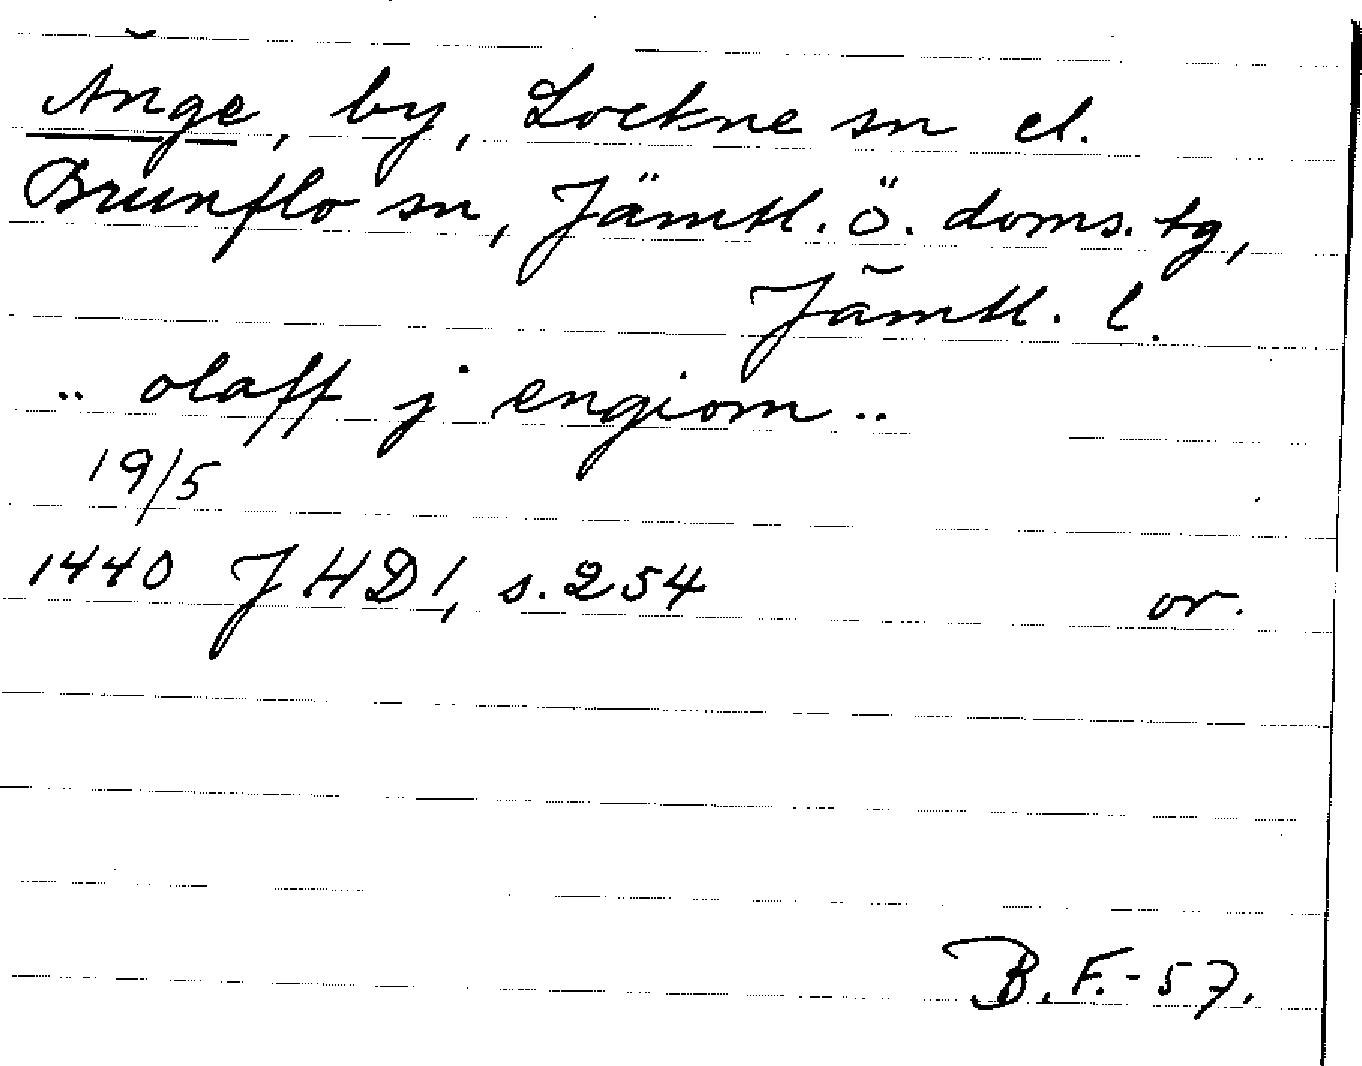 Änge, by, Lockne sn el.
Brunflo sn, Jämtl. ö. doms. tg,
Jämtl. l.
.. olaff j engiom ..
19/5
1440 JHD 1, s. 254 or.
B.F.-57.